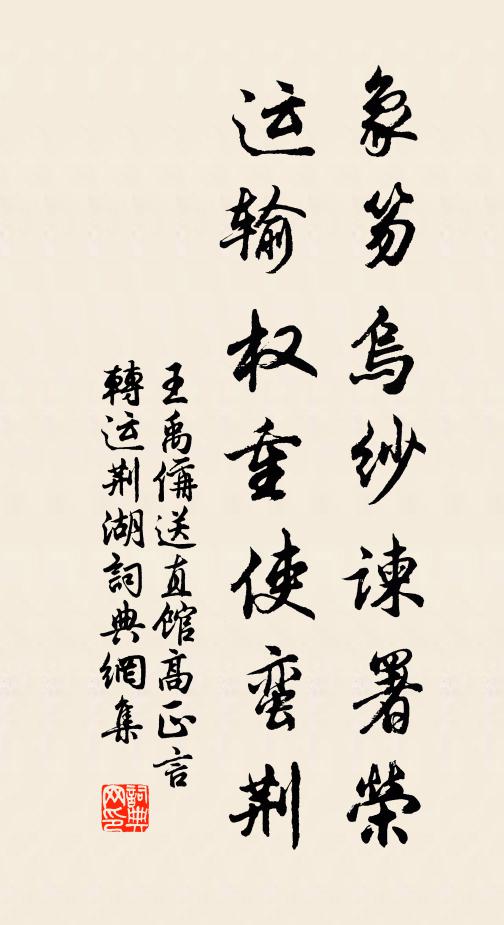 象笏乌纱谏署荣
运输权重使蛮荆
王禹偁送直馆高正言
轉运荆湖詞典網集
詞典网印